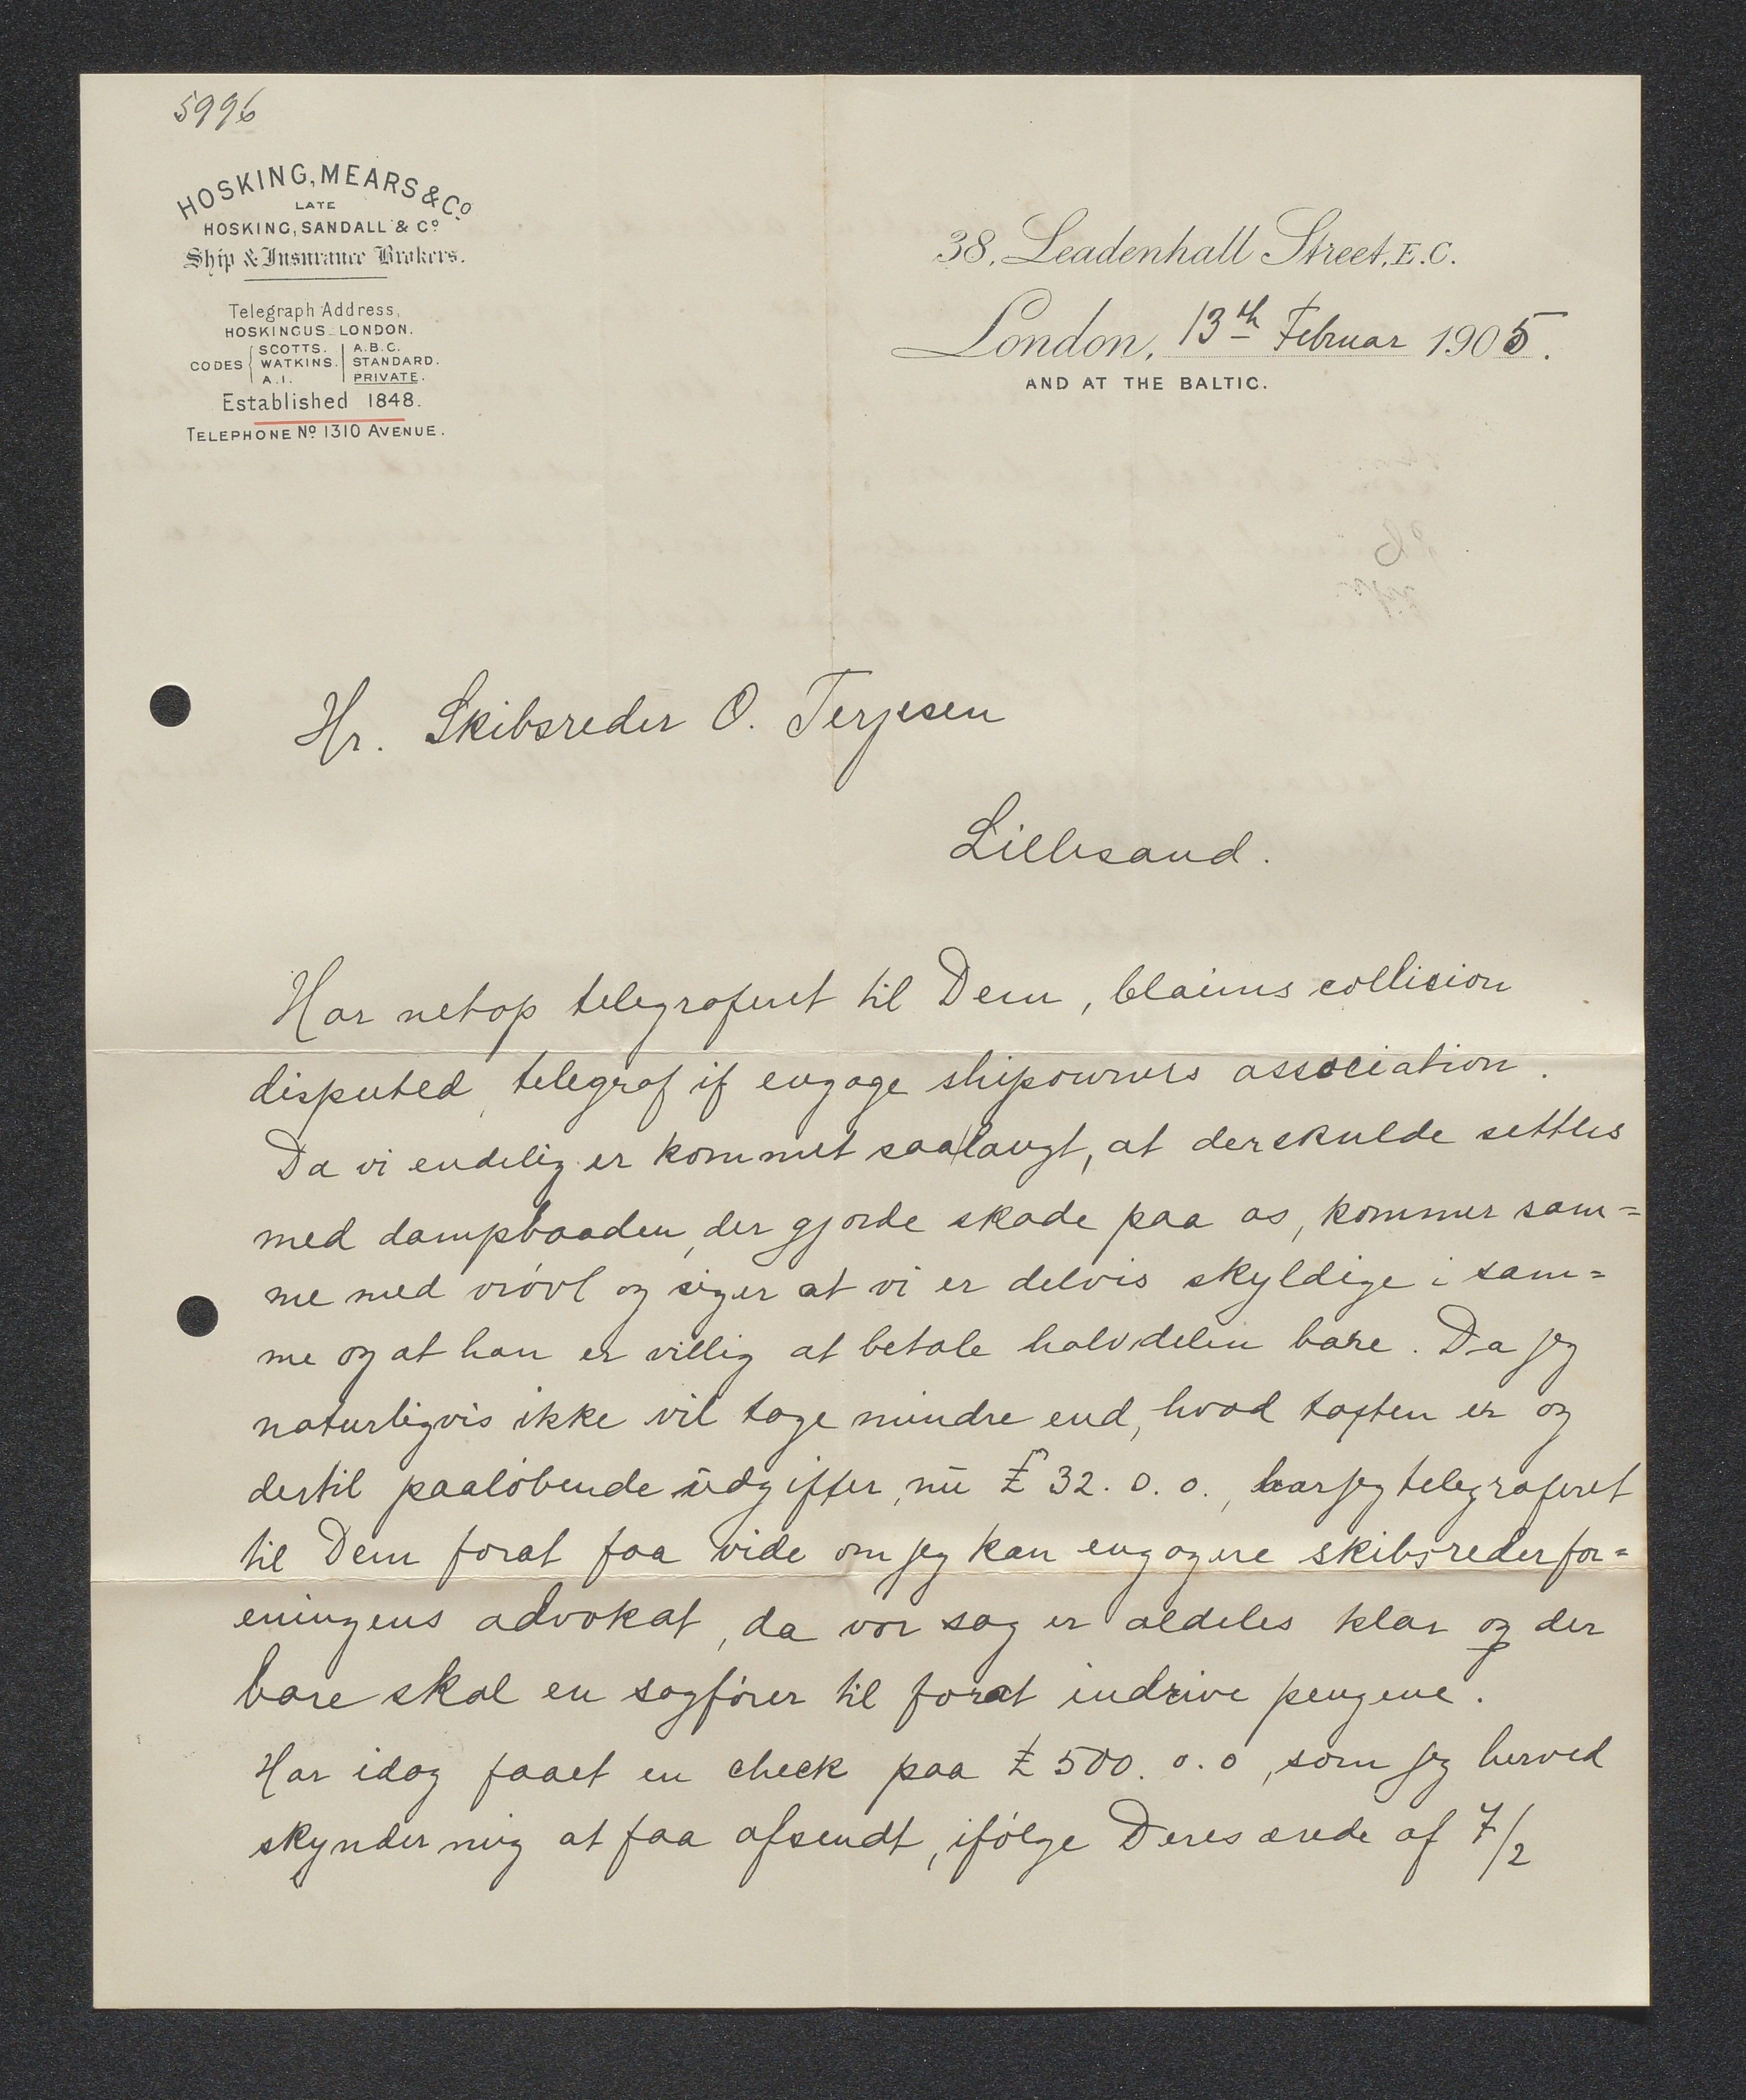 5996
HOSKING, MEARS & Co.
LATE
HOSKING, SANDALL & Co.
Ship & Insurance Brokers.
Telegraph Address,
HOSKINGUS_LONDON.
CODES { SCOTTS. | A.B.C.
WATKINS. | STANDARD.
A.I. | PRIVATE.
Established 1848.
TELEPHONE No 1310 AVENUE.
38, Leadenhall Street, E.C.
London, 13th Februar 1905.
AND AT THE BALTIC.
Hr. Skibsreder O. Terjesen
Lillesand.
Har netop telegraferet til Dem, claims collision
disputed, telegraf if engage shipowners association.
Da vi endelig er kommet saalangt, at der skulde settles
med dampbaaden, der gjorde skade paa os, kommer sam=
me med vróvl og siger at vi er delvis skyldige i sam=
me og at han er villig at betale halvdelen bare. Da jeg
naturligvis ikke vil tage mindre end, hvad taxten er og
dertil paalóbende udgifter, nu £ 32. 0. 0., har jeg telegraferet
til Dem forat faa vide om jeg kan engagere skibsrederfor=
eningens advokat, da vor sag er aldeles klar og der
bare skal en sagfórer til forat indrive pengene.
Har idag faaet en check paa £ 500. 0. 0, som jeg herved
skynder mig at faa afsendt, ifólge Deres ærede af 7/2